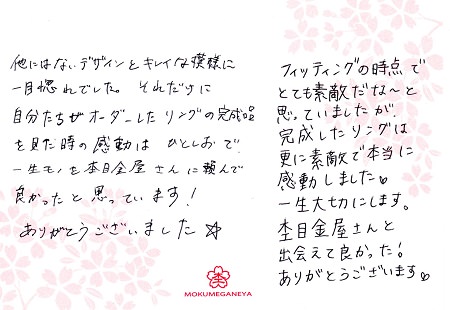 他にはないデザインとキレイな模様に
一目惚れでした。それだけに
自分たちがオーダーしたリングの完成品
を見た時の感動はひとしおで
一生モノを杢目金屋さんに頼んで
良かったと思っています!
ありがとうございました☆
MOKUMEGANEYA
フィッティングの時点で
とても素敵だな〜と
思っていましたが、
完成したリングは
更に素敵で本当に
感動しました♡
一生大切にします。
杢目金屋さんと
出会えて良かった!
ありがとうございます♡